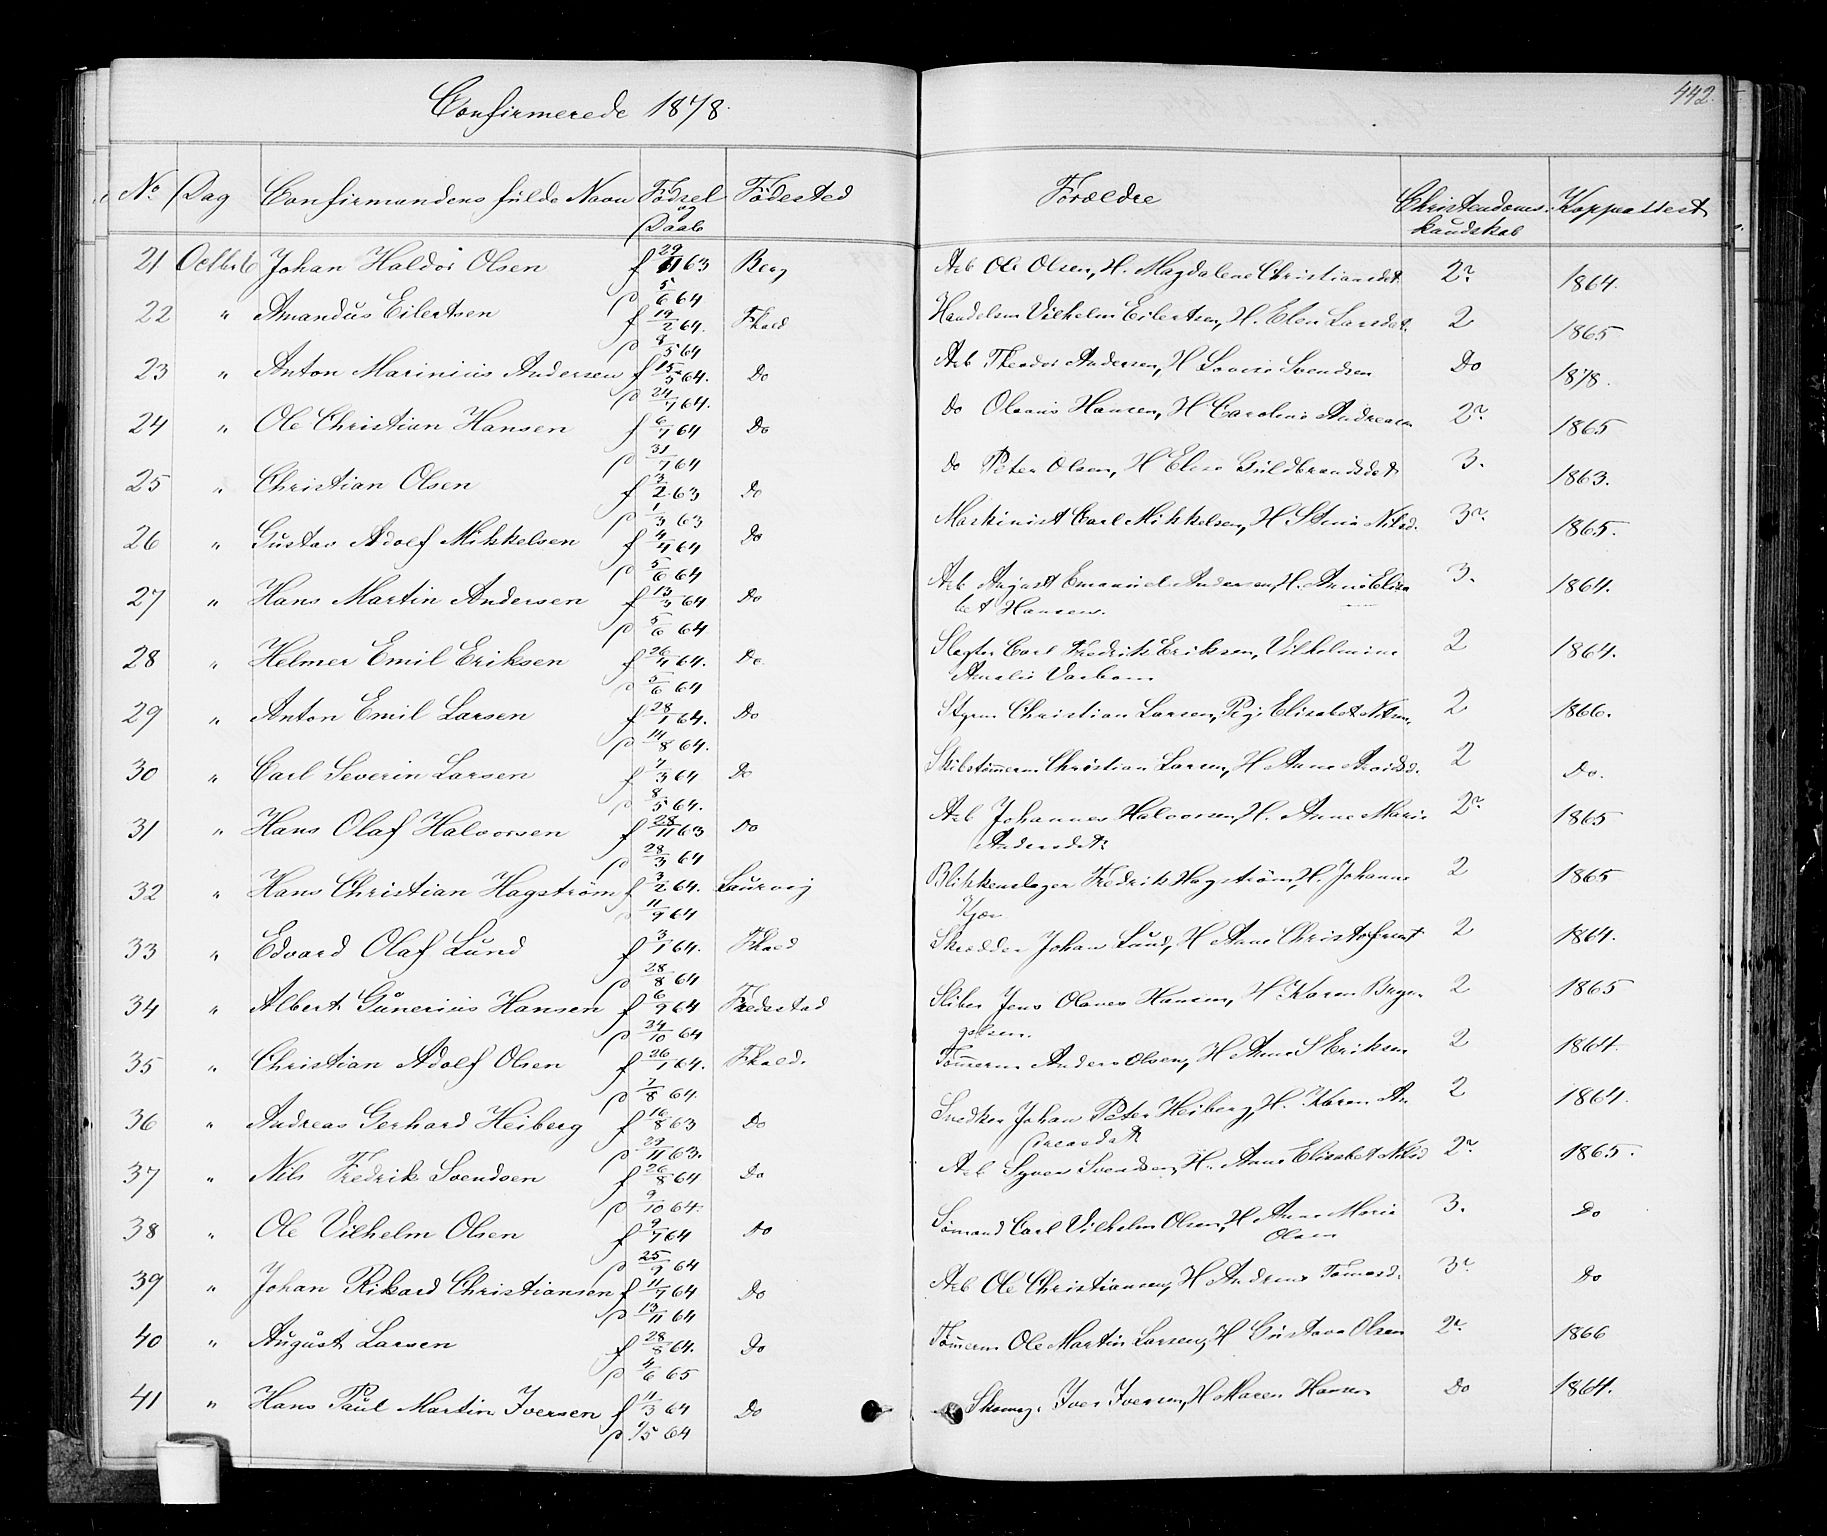 442.
Confirmerede 1878.
No Dag Confirmandens fulde Navn Fødsel og Daab Fødested Forældre Christendoms- kundskab Koppeattest
21 Octbr 6 Johan Haldor Olsen f 29/11 63 Berg Arb Ole Olsen, H. Magdalene Christiansdt. 2r 1864.
d 5/6 64
22 " Amandus Eilertsen f 19/2 64. Fhald Handelsm Vilhelm Eilertsen, H. Elen Larsdt. 2 1865
d 8/5 64
23 " Anton Marinius Andersen f 15/3 64. Do Arb Theodor Andersen, H Lovise Svendsen Do 1878.
d 24/7 64.
24 " Ole Christian Hansen f 6/7 64 Do Do Olaus Hansen, H Caroline Andreasen 2r 1865
d 31/7 64
25 " Christian Olsen f 3/2 63 Do Do Peter Olsen, H Elise Guldbrandsdt 3. 1863.
d 1/3 63
26 " Gustav Adolf Mikkelsen f 4/4 64 Do Maskinist Carl Mikkelsen, H Stine Nilsd. 3r 1865.
d 5/6 64
27 " Hans Martin Andersen f 13/3 64 Do Arb August Emanuel Andersen, H. Anne Elisa 3. 1864.
d 5/6 64 bet Hansens.
28 " Helmer Emil Eriksen f 26/4 64. Do Slagter Carl Fredrik Eriksen, Vilhelmine 2 1864.
d 5/6 64 Amalie
29 " Anton Emil Larsen f 28/1 64. Do Styrm Christian Larsen, Pige Elisabet 2 1866.
d 14/8 64.
30 " Carl Severin Larsen f 7/3 64 Do Skibstømerm Christian Larsen, H Anne 2 Do.
d 8/5 64.
31 " Hans Olaf Halvorsen f 28/11 63 Do Arb Johannes Halvorsen, H. Anne Marie 2r 1865
d 28/3 64 Andersdt.
32 " Hans Christian Hagstrøm f 3/2 64. Laurvig Blikkenslager Fredrik Hagstrøm, H. Johanne 2 1865
d 11/9 64 Kjær
33 " Edvard Olaf Lund f 3/1 64. Fhald Skrædder Johan Lund, H Anne Christofersdt 2 1864.
d 28/8 64
34 " Albert Gunerius Hansen f 6/9 64 Fredestad Sliber Jens Olaves Hansen, H Karen 2 1865
d 24/10 64
35 " Christian Adolf Olsen f 26/1 64. Fhald. Tømerm Anders Olsen, H Anne S Eriksen 2 1864.
d 7/8 64.
36 " Andreas Gerhard Heiberg f 16/8 63 Do Snedker Johan Peter Heiberg, H. Karen An 2 1864.
d 29/11 63. dreasdt
37 " Nils Fredrik Svendsen f 26/8 64 Do Arb Syver Svendsen, H. Anne Elisabet Nilsd 2r 1865.
d 9/10 64.
38 " Ole Vilhelm Olsen f 9/7 64 Do Sømand Carl Vilhelm Olsen, H Anne Marie 3. Do
d 25/9 64 Olsen
39 " Johan Rikard Christiansen f 11/7 64 Do Arb Ole Christiansen, H Andrine Tomasd. 3r Do
d 13/11 64
40 " August Larsen f 28/8 64. Do Tømerm Ole Martin Larsen, H Gustava Olsen 2r 1866
d 4/6 65
41 " Hans Paul Martin Iversen f 11/3 64 Do Skomag. Iver Iversen, H Maren Hansen Do 1864.
d 1/5 64